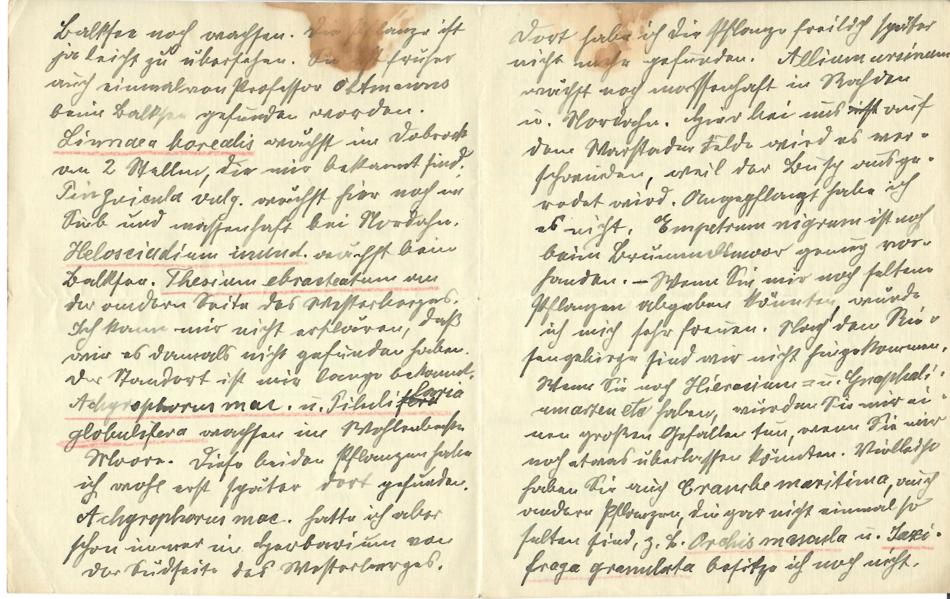 Balksee noch wachsen. Die Pflanze ist
ja leicht zu übersehen. Sie früher
auch einmal von Professor Oltmanns
beim Balksee gefunden worden.
Linnaea borealis wächst im Dobrock
an 2 Stellen, die mir bekannt sind.
Pinguicula vulg. wächst hier noch im
und massenhaft bei Nordahn.
Helosciadium inund. wächst beim
Balksee. Thesium ebracteatum an
der andern Seite des Westerberges.
Ich kann mir nicht erklären, daß
wir es damals nicht gefunden haben.
Der Standort ist mir lange bekannt.
Achyrophorus mac. u. Pilularia
globulifera wachsen im
Moore. Diese beiden Pflanzen habe
ich wohl erst später dort gefunden.
Achyrophorus mac. hatte ich aber
schon immer im Herbarium von
der Südseite des Westerberges.
Dort habe ich die Pflanze freilich später
nicht mehr gefunden. Allium ursinum
wächst noch massenhaft in Rahden
u. Nordahn. Hier bei uns ist auf
dem Warstader Felde wird es ver-
schwinden, weil der Busch ausge-
rodet wird. Angepflanzt habe ich
es nicht. Empetrum nigrum ist noch
beim genug vor-
handen. – Wenn Sie mir noch seltene
Pflanzen abgeben könnten, würde
ich mich sehr freuen. Nach den Rie-
sengebirge sind wir nicht hingekommen.
Wenn Sie noch Hieracium= u. Gnaphali-
umarten etc haben, würden Sie mir ei-
nen großen Gefallen tun, wenn Sie mir
noch etwas überlassen könnten. Vielleicht
haben Sie auch Crambe maritima, auch
andere Pflanzen, die gar nicht einmal so
selten sind, z. B. Orchis mascula u. Saxi-
fraga granulata besitze ich noch nicht.